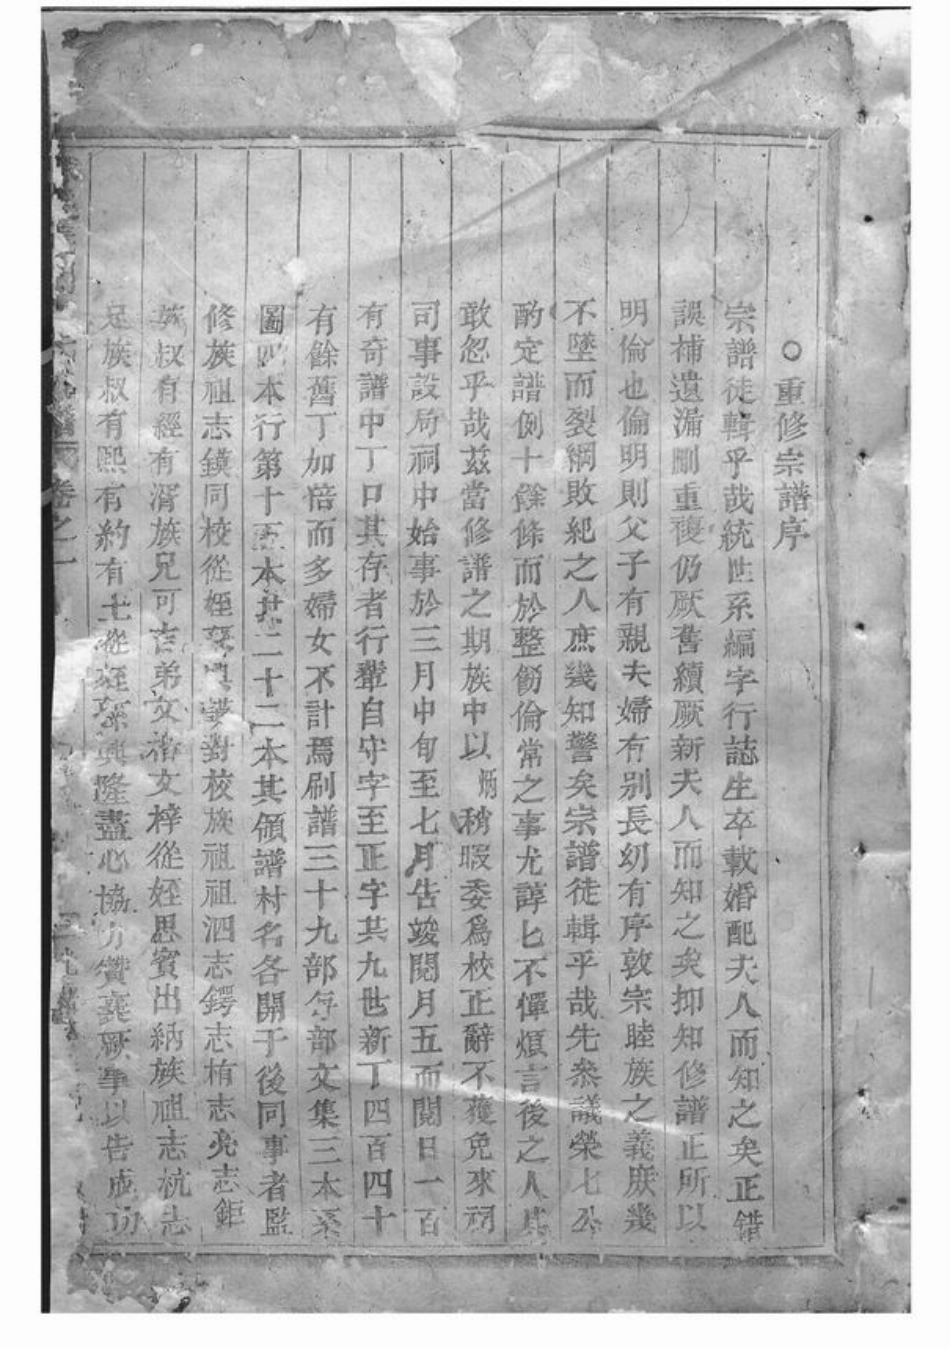 ○重修宗譜序
宗譜徒輯乎哉統世系編字行誌生卒載婚配夫人而知之矣正錯
誤補遺漏刪重複仍厥舊續厥新夫人而知之矣抑知修譜正所以
明倫也倫明則父子有親夫婦有别長幼有序敦宗睦族之義庶幾
不墜而裂綱敗紀之人庶幾知警矣宗譜徒輯乎哉先叅議榮七公
酌定譜例十餘條而於整飭倫常之事尤諄匕不憚煩言後之人其
敢忽乎哉茲當修譜之期族中以炳稍暇委爲校正辭不獲免來祠
司事設局祠中始事於三月中旬至七月告竣閱月五而閱日一百
有奇譜中丁口其存者行輩自守字至正字共九世新丁四百四十
有餘舊丁加倍而多婦女不計焉刷譜三十九部每部文集三本系
圖四本行第十五本共二十二本其領譜村名各開于後同事者監
修族祖志鏌同校從姪對校族祖祖泗志鍔志栯志亮志鉅
族叔有經有湑族兄可吉弟文楷文梓從姪思賓出納族祖志杭志
足族叔有熙有約有七從姪孫興隆盡心協力贊襄厥事以告成功
卷之一